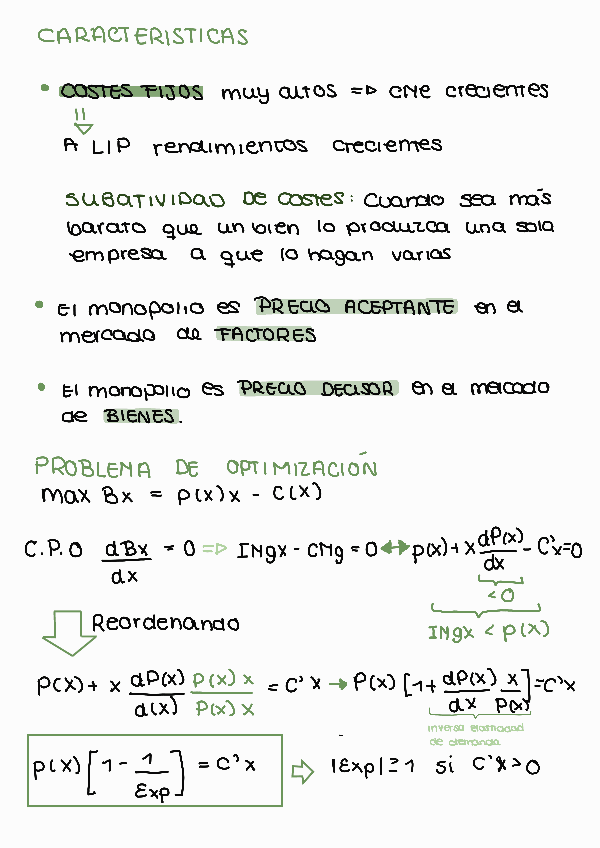 CARACTERISTICAS
• COSTES FIJOS muy altos => CMe crecientes
A L/P rendimientos crecientes
SUBATIVIDAD DE COSTES: Cuando sea más
barato que un bien lo produzca una sola
empresa a que lo hagan varias
• El monopolio es PRECIO ACEPTANTE en el
mercado de FACTORES
• El monopolio es PRECIO DECISOR en el mercado
de BIENES.
PROBLEMA DE OPTIMIZACIÓN
max Bx = p(x)x - C(x)
C.P.O dBx/dx = 0 => INgx - CMg = 0 <-> p(x) + x dP(x)/dx - C'x=0
<0
Reordenando
INgx < p(x)
P(X) + x dP(x)/d(x) P(x) x/P(x) x = C'x → P(x) [1 + dP(x)/dx x/P(x)] = C'x
inversa elasticidad
de demanda
p(x) [1 - 1/Exp] = C'x ⇒ |Exp| ≥ 1 si C'x > 0